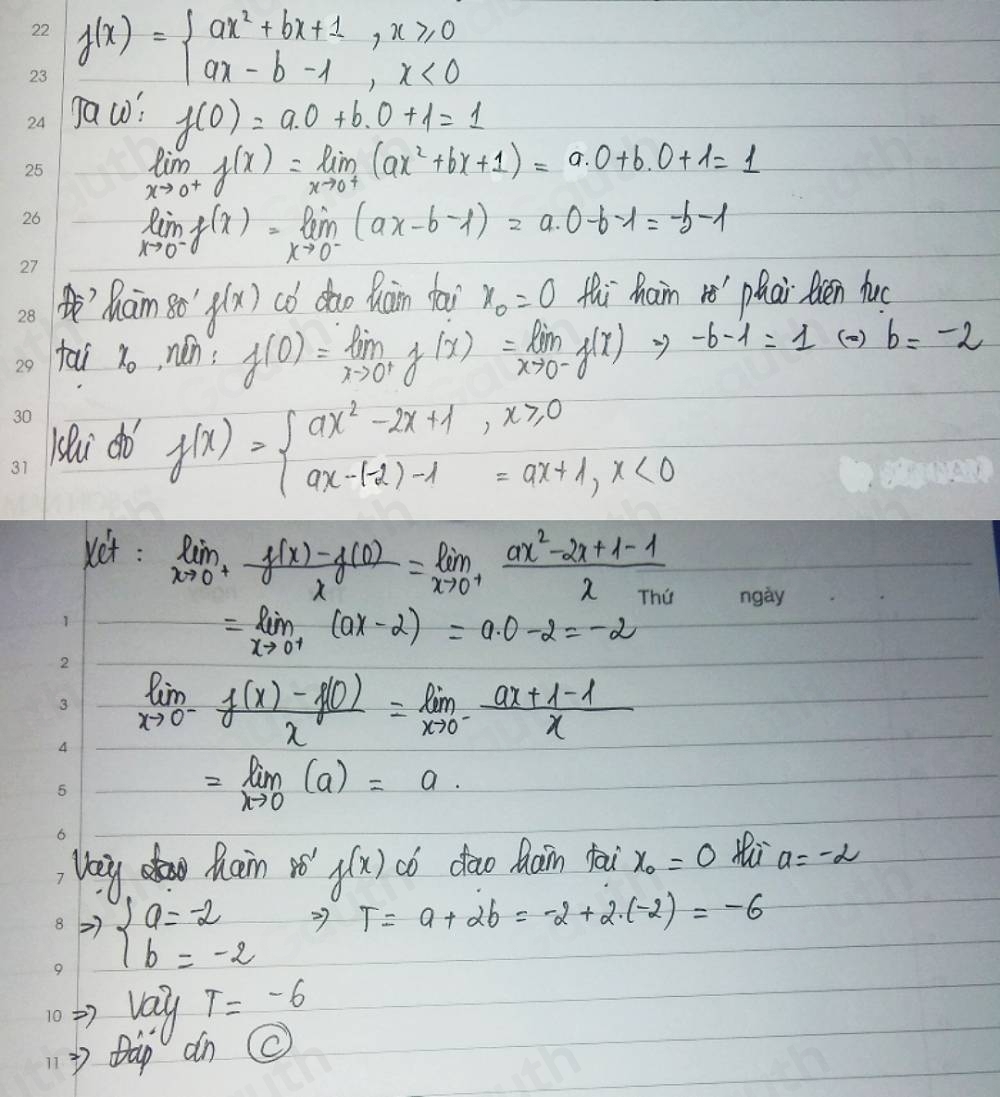 22 f(x) = { ax² + bx + 1 , x ≥ 0
23 ax - b - 1 , x < 0
24 Ta có: f(0) = a.0 + b.0 + 1 = 1
25 lim x→0⁺ f(x) = lim x→0⁺ (ax² + bx + 1) = a.0 + b.0 + 1 = 1
26 lim x→0⁻ f(x) = lim x→0⁻ (ax - b - 1) = a.0 - b - 1 = -b - 1
27
28 Để hàm số f(x) có đạo hàm tại x₀ = 0 thì hàm số phải liên tục
29 tại x₀ nên: f(0) = lim x→0⁺ f(x) = lim x→0⁻ f(x) ⇒ -b - 1 = 1 ⇔ b = -2
30 Khi đó f(x) = { ax² - 2x + 1 , x ≥ 0
31 ax - (-2) - 1 = ax + 1, x < 0
Xét: lim x→0⁺ (f(x) - f(0))/x = lim x→0⁺ (ax² - 2x + 1 - 1)/x
Thứ ngày
1 = lim x→0⁺ (ax - 2) = a.0 - 2 = -2
2
3 lim x→0⁻ (f(x) - f(0))/x = lim x→0⁻ (ax + 1 - 1)/x
4
5 = lim x→0 (a) = a.
6
7 Vậy hàm số f(x) có đạo hàm tại x₀ = 0 thì a = -2
8 ⇒ { a = -2 ⇒ T = a + 2b = -2 + 2.(-2) = -6
9 b = -2
10 ⇒ Vậy T = -6
11 ⇒ Đáp án C